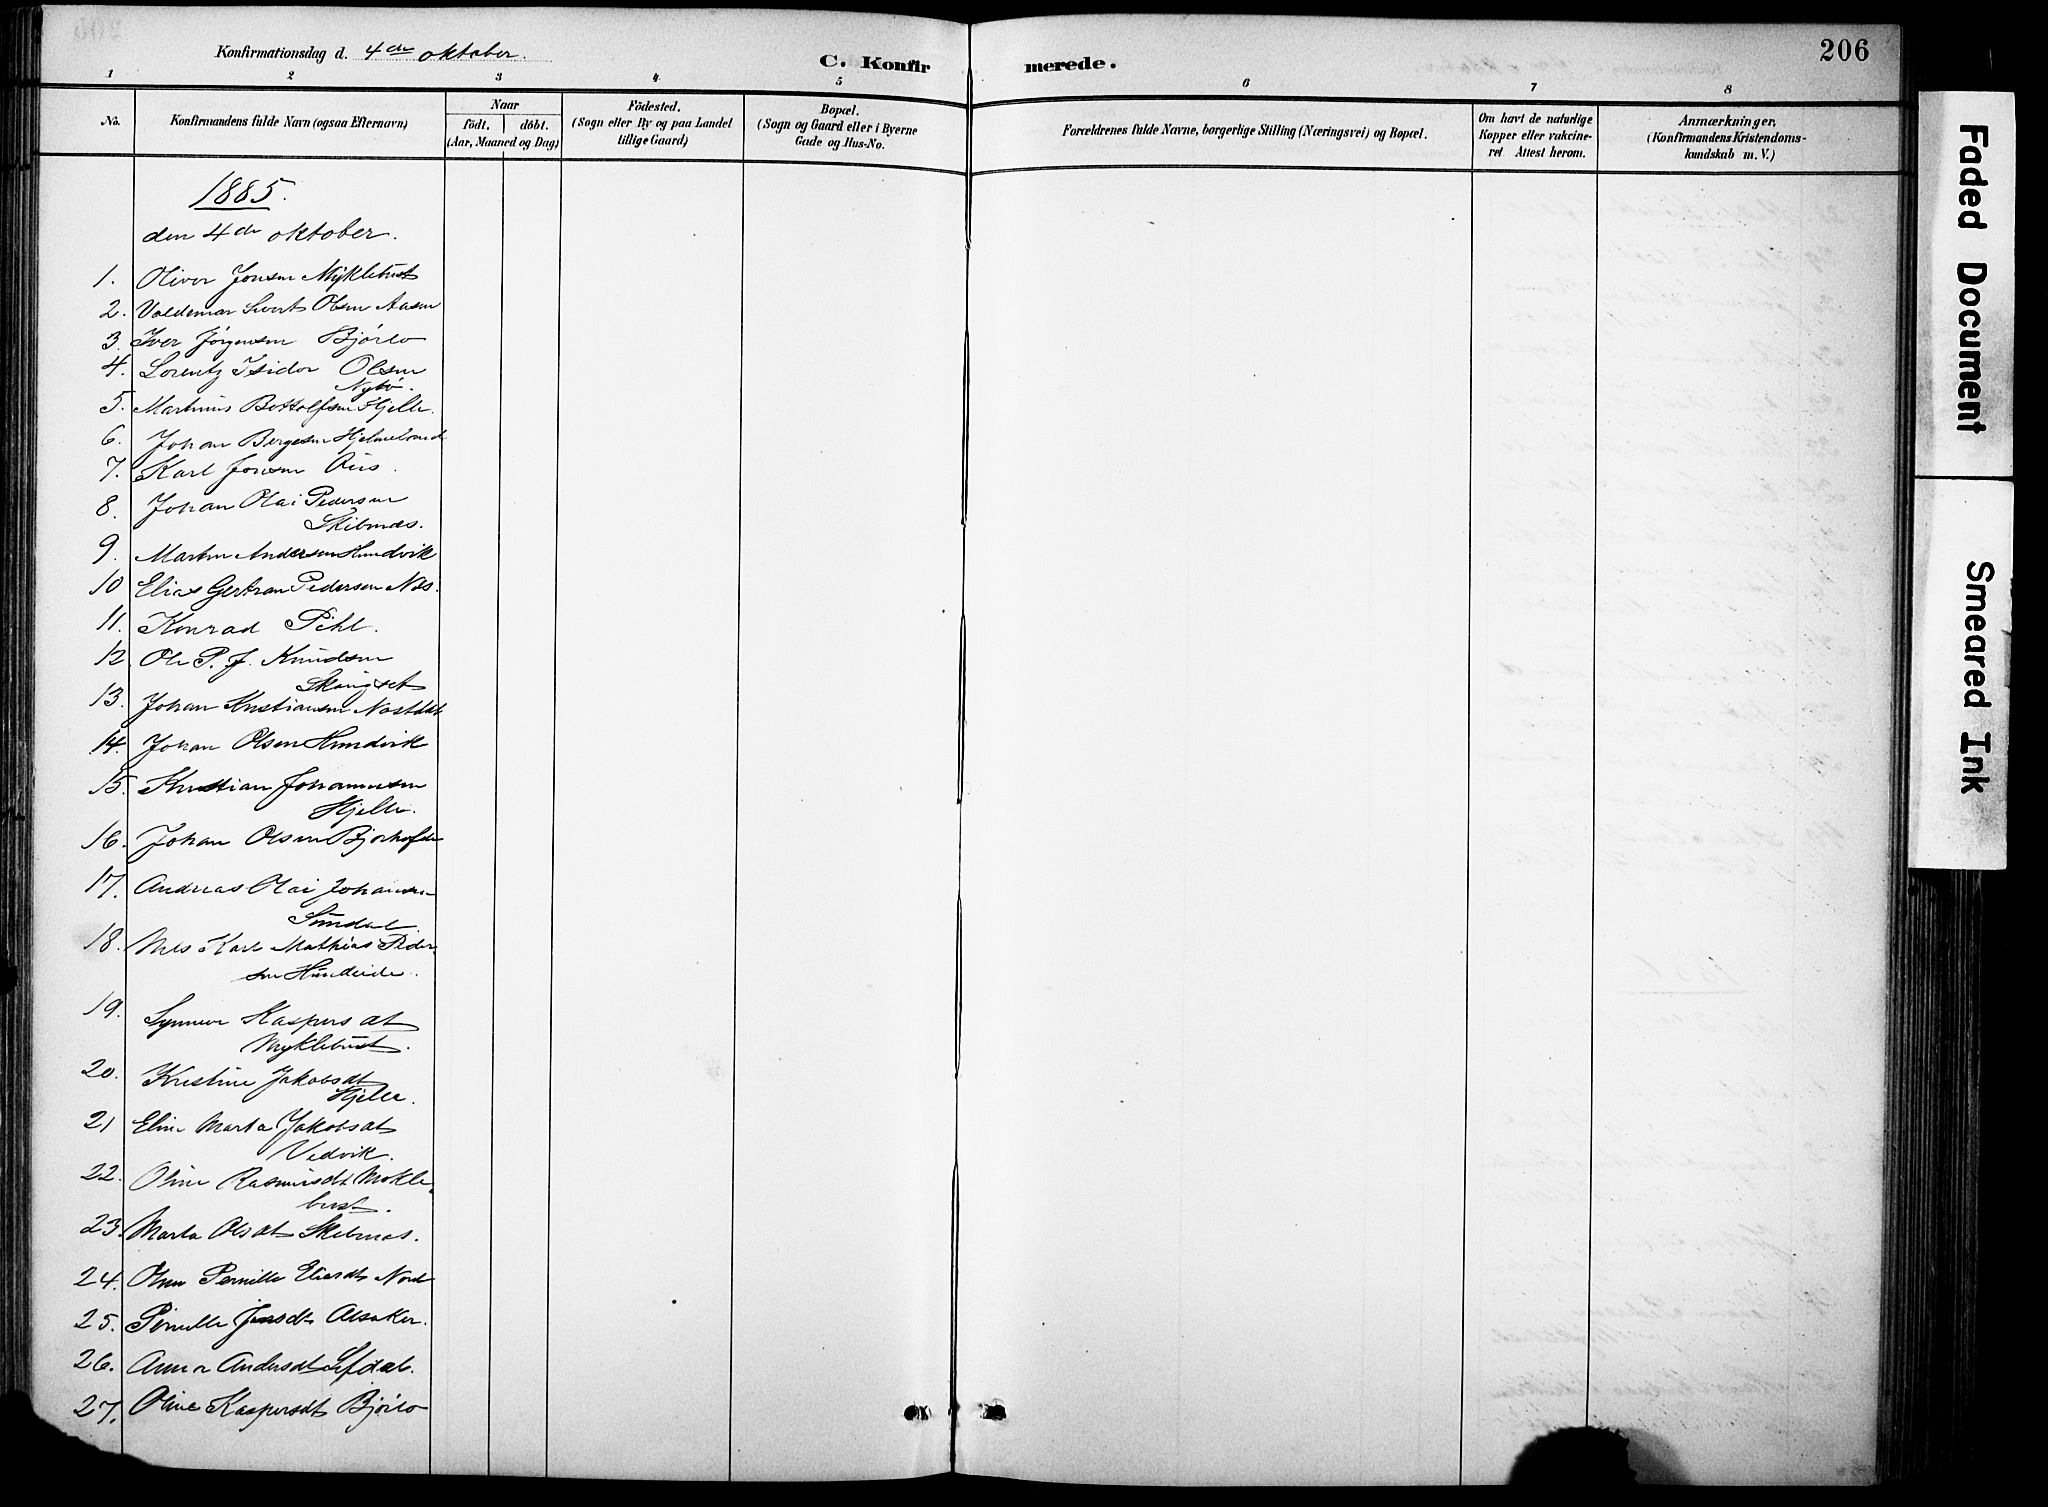 206
Konfirmationsdag d. 4de oktober.
C. Konfirmerede.
1 2 3 4 5 6 7 8
No.
Konfirmandens fulde Navn (ogsaa Efternavn)
Naar
födt. döbt.
(Aar, Maaned og Dag)
Födested.
(Sogn eller By og paa Landet
tillige Gaard)
Bopæl.
(Sogn og Gaard eller i Byerne
Gade og Hus-No.
Forældrenes fulde Navne, borgerlige Stilling (Næringsvei) og Bopæl.
Om havt de naturlige
Kopper eller vakcine-
ret Attest herom.
Anmærkninger.
(Konfirmandens Kristendoms-
kundskab m. V.)
1885.
den 4de oktober.
1. Oliver Jonsen Myklebust
2. Valdemar Sivert Olsen Aasen
3. Iver Jørgensen Bjørlo
4. Lorentz Isidor Olsen
Nybø.
5. Martinus Bottolfsen Hjelle.
6. Johan Bergesen Hjelmeland
7. Karl Jonsen
8. Johan Olai Pedersen
Skibenes.
9. Martin Andersen Hundvik
10 Elias Gertran Pedersen Nes.
11. Konrad Pihl.
12. Ole P. J. Knudsen
Skaugset
13. Johan Kristiansen Nastdal
14. Johan Olsen Hundvik
15. Kristian Johannesen
Hjelle.
16. Johan Olsen
17. Andreas Olai Johansen
Sundal
18. Nils Karl Mathias Peder-
sen Hundeide.
19. Synneve Kaspersdt
Myklebust.
20. Kristine Jakobsdt
Hjelle.
21 Eline Marta Jakobsdt
Vedvik.
22. Oline Rasmusdt Mykle-
bust.
23. Marta Olsdt Skibenes.
24. Oline Pernille Eliasdt Nord
25. Pernille Jensdt Alsaker.
26. Anna Andersdt Lefdal.
27. Oline Kaspersdt Bjørlo
Faded Document
Smeared Ink